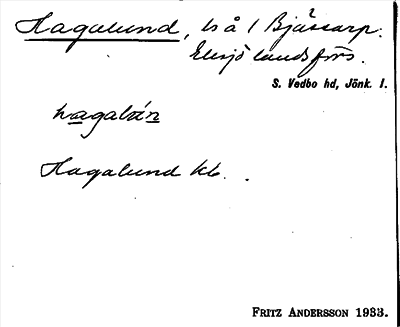 Hagalund, ls å 1 Bjässarp.
Eksjö landsförs.
S. Vedbo hd, Jönk. l.
hagalún
Hagalund kb.
FRITZ ANDERSSON 1933.